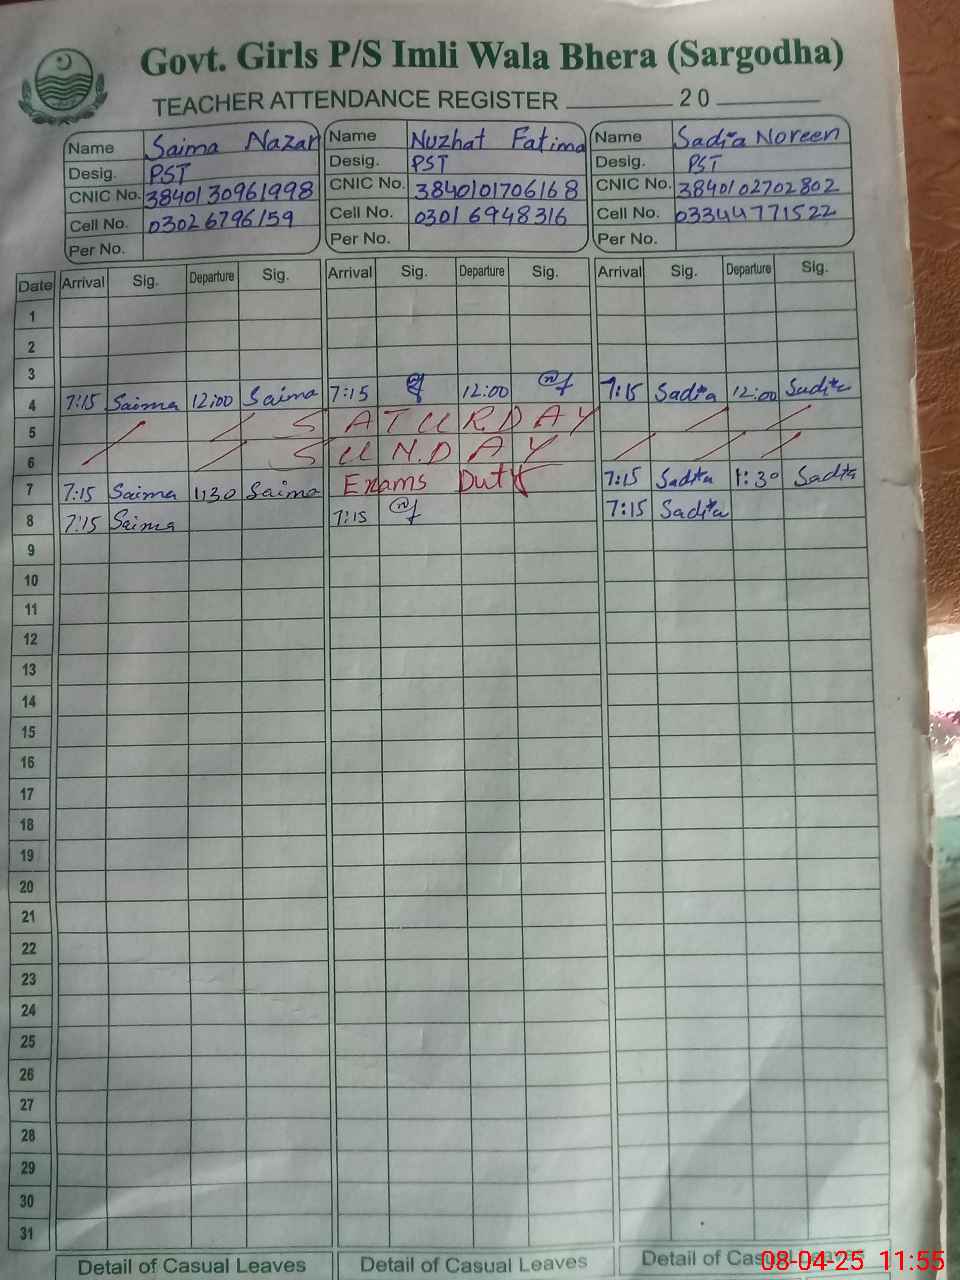 Govt. Girls P/S Imli Wala Bhera (Sargodha)
TEACHER ATTENDANCE REGISTER ________ 20 ________
Name Saima Nazar Name Nuzhat Fatima Name Sadia Noreen
Desig. PST Desig. PST Desig. PST
CNIC No. 3840130961998 CNIC No. 3840101706168 CNIC No. 3840102702802
Cell No. 03026796159 Cell No. 03016948316 Cell No. 03344771522
Per No. Per No. Per No.
Date Arrival Sig. Departure Sig. Arrival Sig. Departure Sig. Arrival Sig. Departure Sig.
1
2
3
4 7:15 Saima 12:00 Saima 7:15 12:00 7:15 Sadia 12:00 Sadia
5 SATURDAY
6 SUNDAY
7 7:15 Saima 1:30 Saima Exams Duty 7:15 Sadia 1:30 Sadia
8 7:15 Saima 7:15 7:15 Sadia
9
10
11
12
13
14
15
16
17
18
19
20
21
22
23
24
25
26
27
28
29
30
31
Detail of Casual Leaves Detail of Casual Leaves Detail of Casual Leaves
08-04-25 11:55